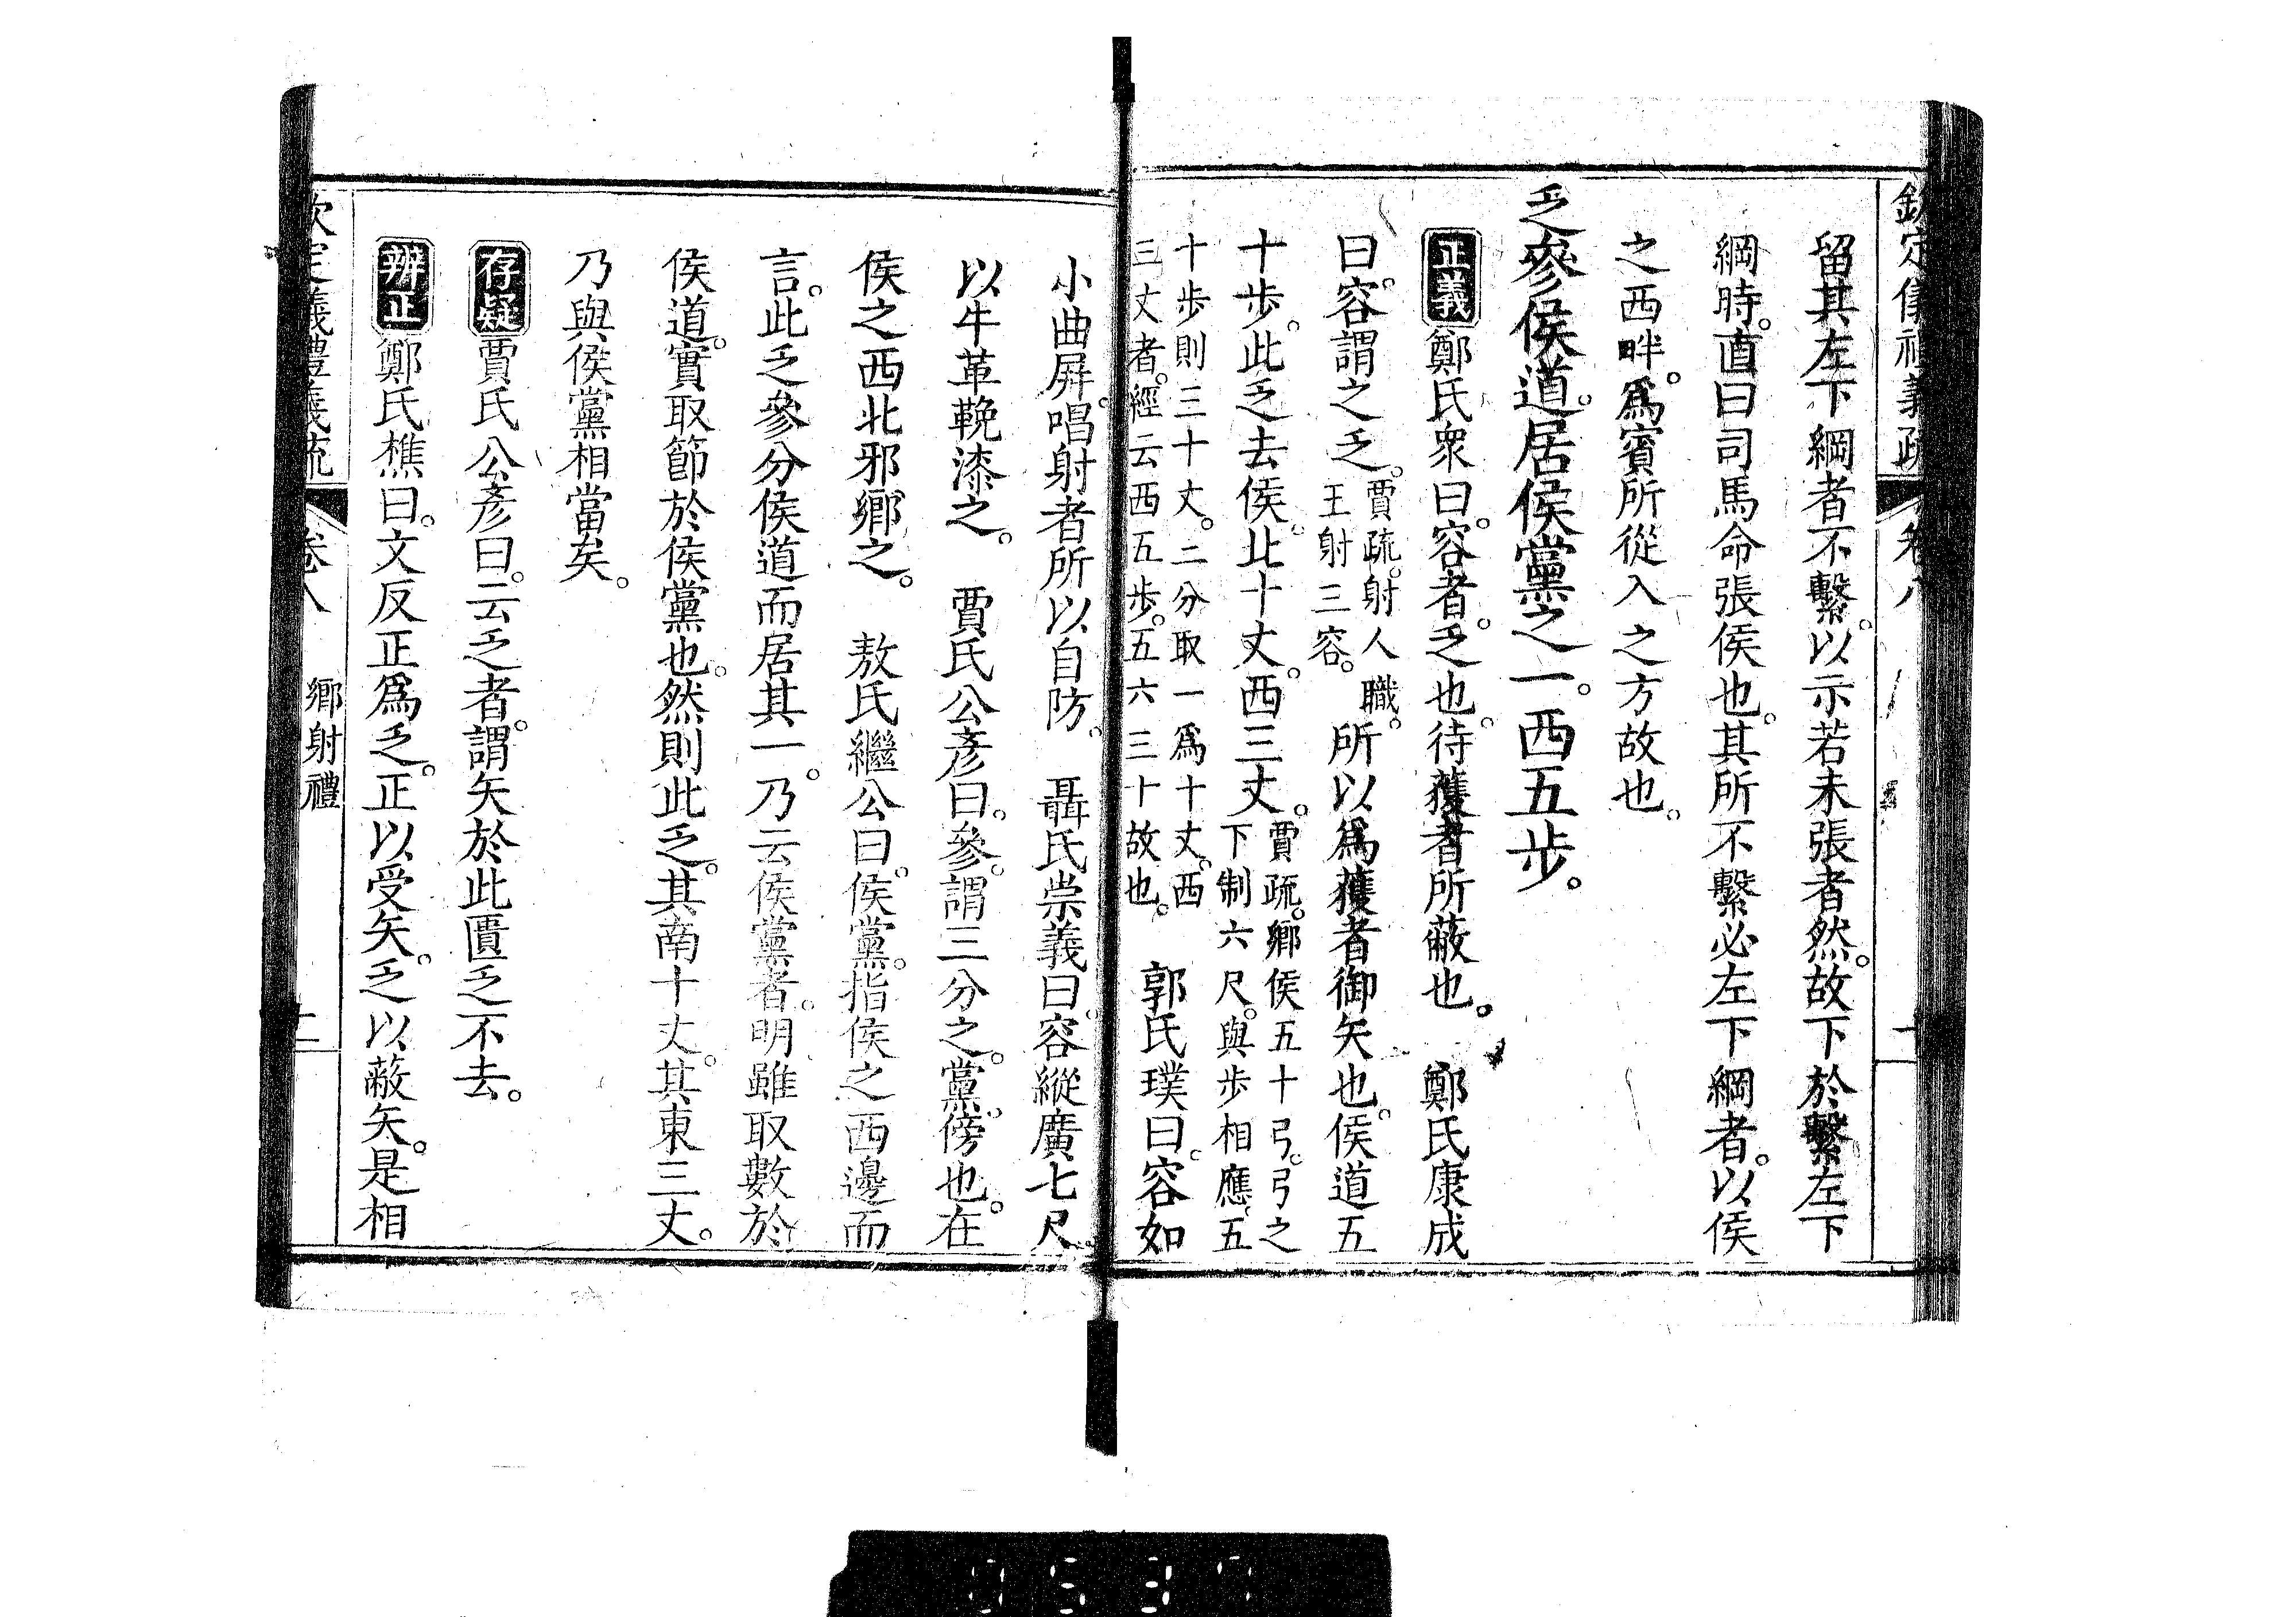 欽定儀禮義疏 卷八
留其左下綱者不繫。以示若未張者然。故下於繫左下
綱時。直曰司馬命張侯也。其所不繫必左下綱者。以侯
之西畔。爲賓所從入之方故也。
乏參侯道。居侯黨之一。西五步。
正義 鄭氏衆曰。容者。乏也。待獲者所蔽也。 鄭氏康成
曰。容謂之乏。賈疏。射人職。王射三容。所以爲獲者御矢也。侯道五
十步。此乏去侯。北十丈。西三丈。賈疏。鄉侯五十弓。弓之下制六尺。與步相應。五
十步則三十丈。二分取一爲十丈。西三丈者。經云西五步。五六三十故也。 郭氏璞曰。容如
小曲屏。唱射者所以自防。 聶氏崇義曰。容縱廣七尺。
以牛革鞔漆之。 賈氏公彥曰。參。謂三分之。黨。傍也。在
侯之西北邪鄉之。 敖氏繼公曰。侯黨。指侯之西邊而
言。此乏參分侯道而居其一。乃云侯黨者。明雖取數於
侯道。實取節於侯黨也。然則此乏。其南十丈。其東三丈。
乃與侯黨相當矣。
存疑 賈氏公彥曰。云乏者。謂矢於此匱乏不去。
辨正 鄭氏樵曰。文反正爲乏。正以受矢。乏以蔽矢。是相
欽定義禮義疏 卷八 鄉射禮